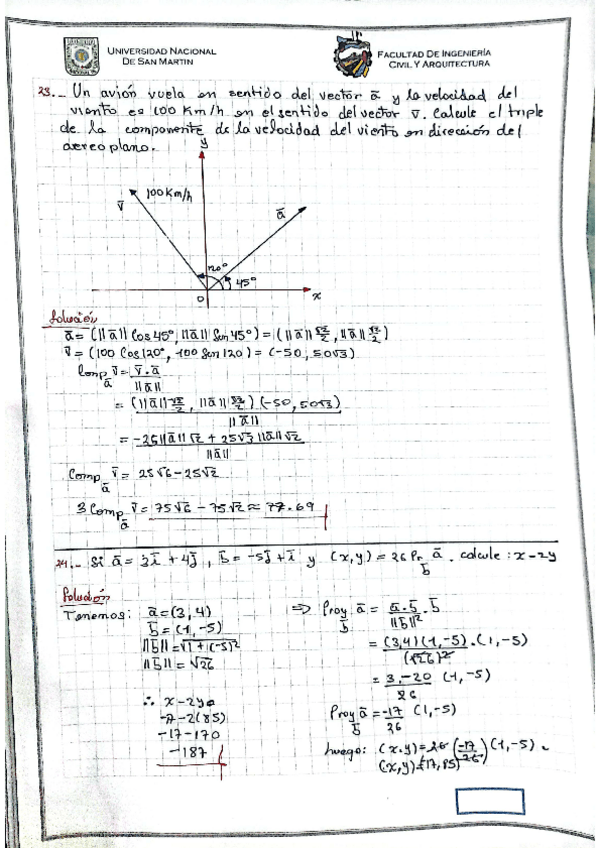 UNIVERSIDAD NACIONAL
DE SAN MARTIN
FACULTAD DE INGENIERÍA
CIVIL Y ARQUITECTURA
23._ Un avión vuela en sentido del vector a̅ y la velocidad del
viento es 100 Km/h en el sentido del vector v̅. Calcule el triple
de la componente de la velocidad del viento en dirección del
aereoplano.
y
100 Km/h
v̅
a̅
120°
45°
O
x
Solución
a̅ = (||a̅|| Cos 45°, ||a̅|| Sen 45°) = (||a̅|| √2/2, ||a̅|| √2/2)
v̅ = (100 Cos 120°, 100 Sen 120) = (-50, 50√3)
Comp_a̅ v̅ = v̅.a̅ / ||a̅||
= (||a̅|| √2/2, ||a̅|| √2/2)(-50, 50√3) / ||a̅||
= -25||a̅||√2 + 25√3 ||a̅||√2 / ||a̅||
Comp_a̅ v̅ = 25√6 - 25√2
3 Comp_a̅ v̅ = 75√6 - 75√2 ≈ 77.69
24._ Si a̅ = 3i̅ + 4j̅, b̅ = -5j̅ + i̅ y (x,y) = 26 Pr_b̅ a̅. calcule: x-2y
Solución
Tenemos: a̅ = (3, 4)
b̅ = (1, -5)
||b̅|| = √1 + (-5)²
||b̅|| = √26
∴ x - 2y =
-17 - 2(85)
-17 - 170
-187
⇒ Proy_b̅ a̅ = a̅.b̅ / ||b̅||² . b̅
= (3,4)(1,-5) / (√26)² . (1, -5)
= 3, -20 / 26 (1, -5)
Proy_b̅ a̅ = -17/26 (1, -5)
Luego: (x,y) = 26 (-17/26)(1, -5)
(x,y) = (-17, 85)